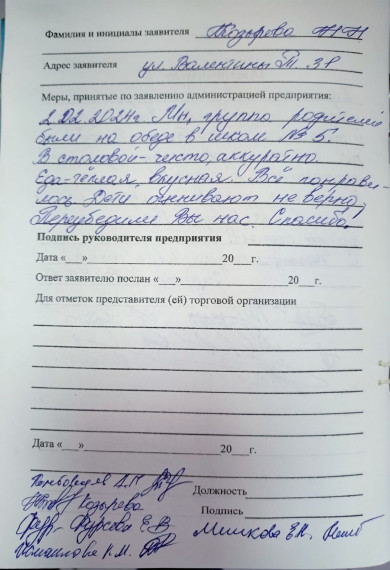 Фамилия и инициалы заявителя Козырева Н Н
Адрес заявителя ул. Валентины Т. 31
Меры, принятые по заявлению администрацией предприятия:
2.02.2024г. Мы, группа родителей
были на обеде в школе № 5.
В столовой - чисто, аккуратно.
Еда - тёплая, вкусная. Всё понрави
лось. Дети оценивают не верно,
Переубедили Вы нас. Спасибо.
Подпись руководителя предприятия
Дата «___» 20___г.
Ответ заявителю послан «___» 20___г.
Для отметок представителя (ей) торговой организации
Дата «___» 20___г.
Должность
Козырева
Подпись
Фурсова Е.В
Мишкова Е.Н.
Исмаилова К.М.